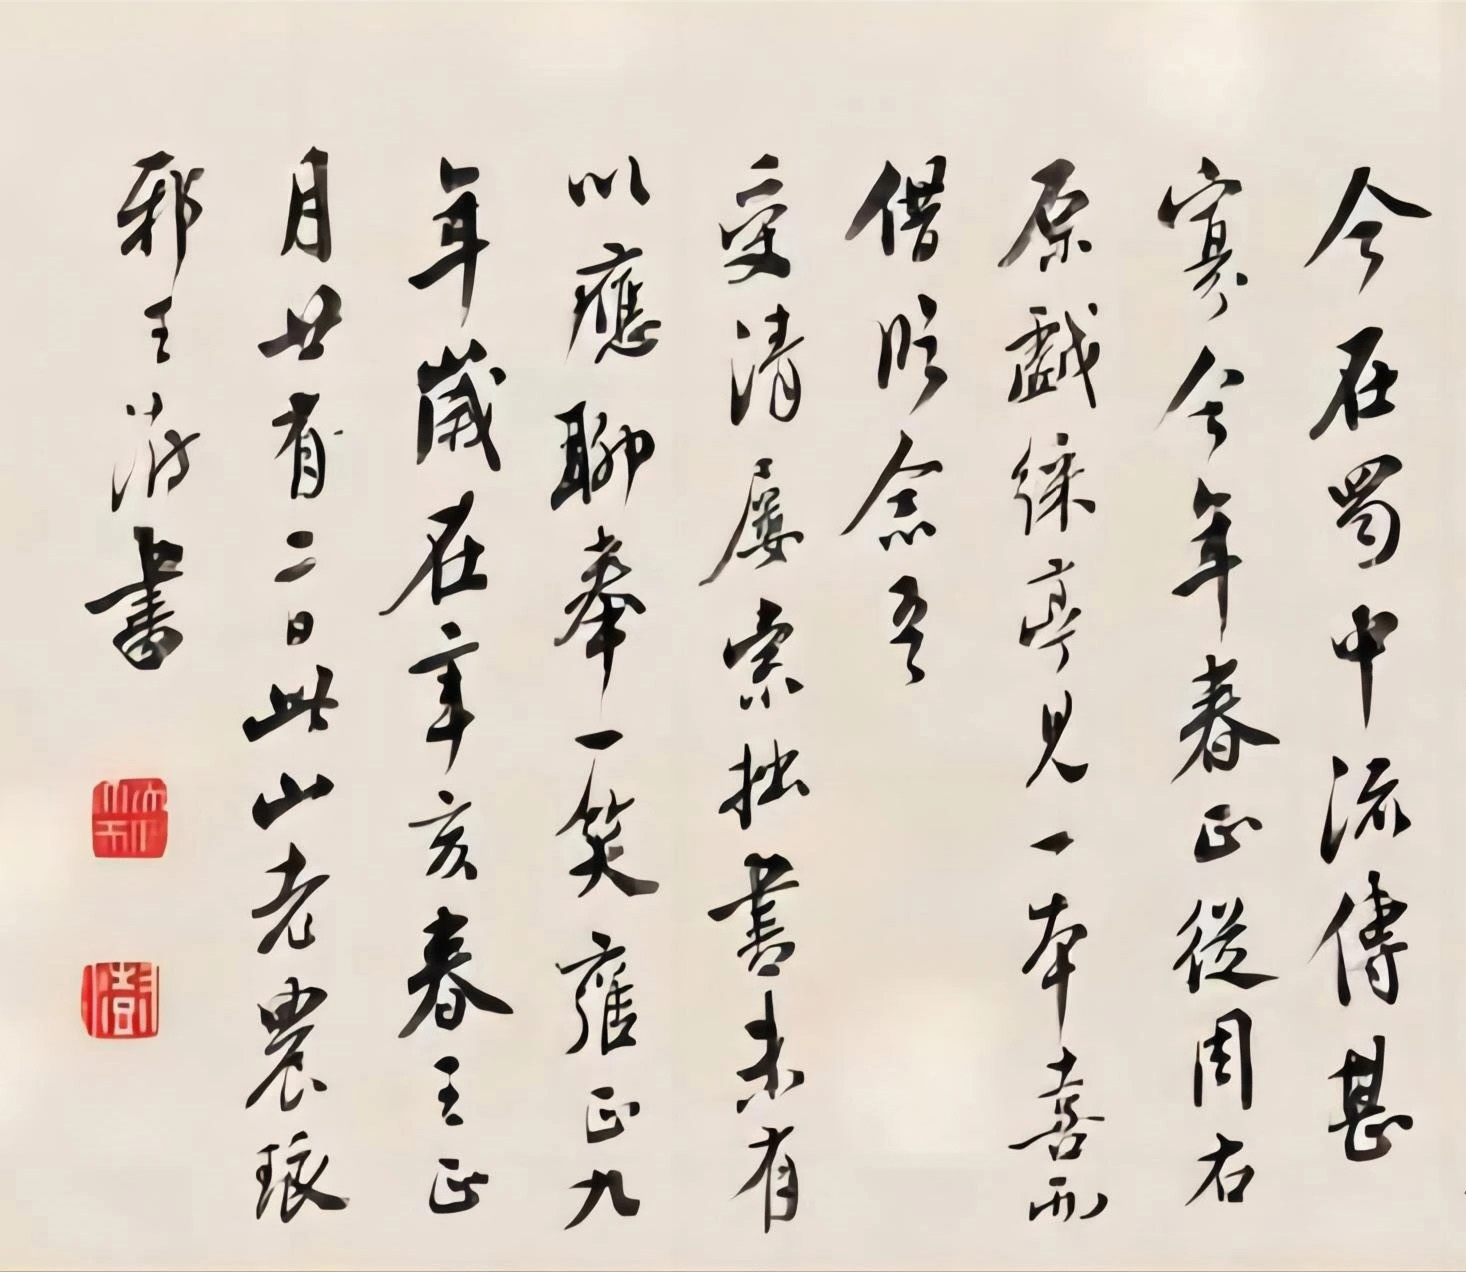 今在蜀中流傳甚
寡今年春正從周右
原戲綵亭見一本喜而
借臨念吾
受清屢索拙書未有
以應聊奉一笑雍正九
年歲在辛亥春王正
月廿有二日此山老農琅
邪王澍書